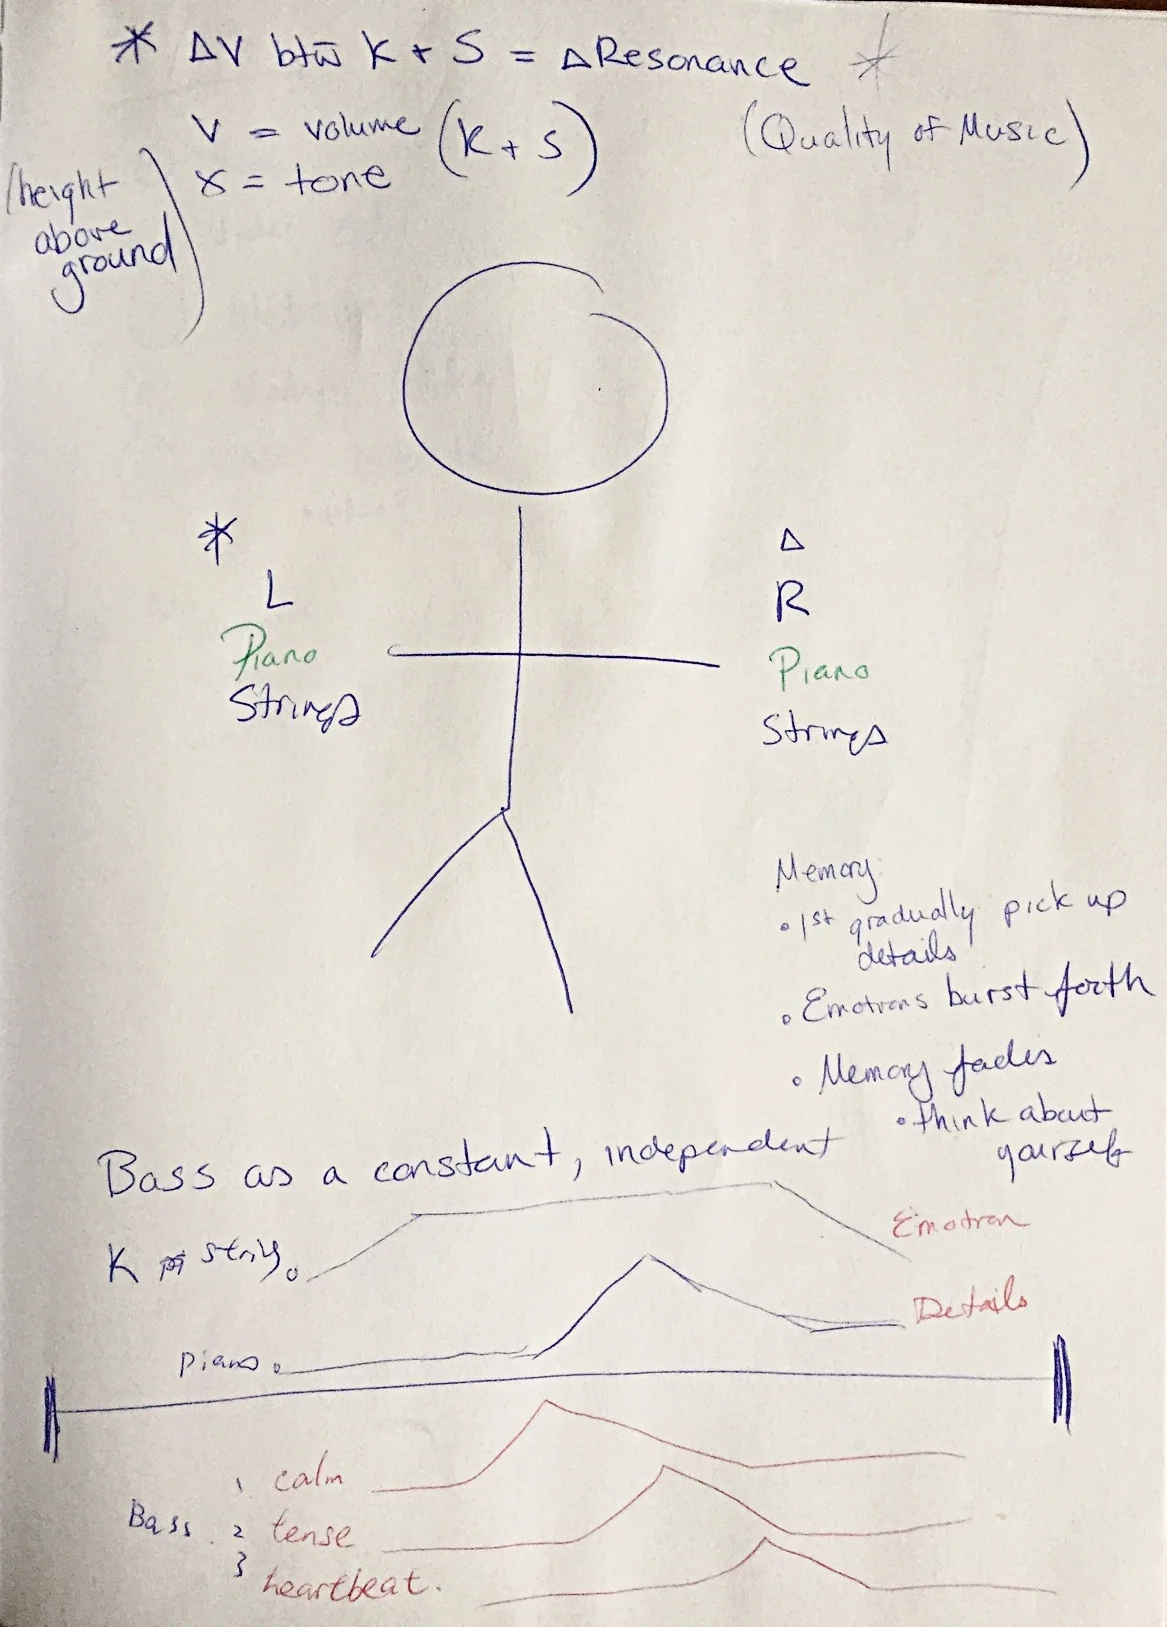 * ΔV btw K + S = ΔResonance *
V = volume (K + S) (Quality of Music)
x = tone
(height
above
ground)
* Δ
L R
Piano Piano
Strings Strings
Memory:
• 1st gradually pick up
details
• Emotions burst forth
• Memory fades
• think about
yourself
Bass as a constant, independent
Emotion
K
Details
Piano
1 calm
Bass. 2 tense
3 heartbeat.